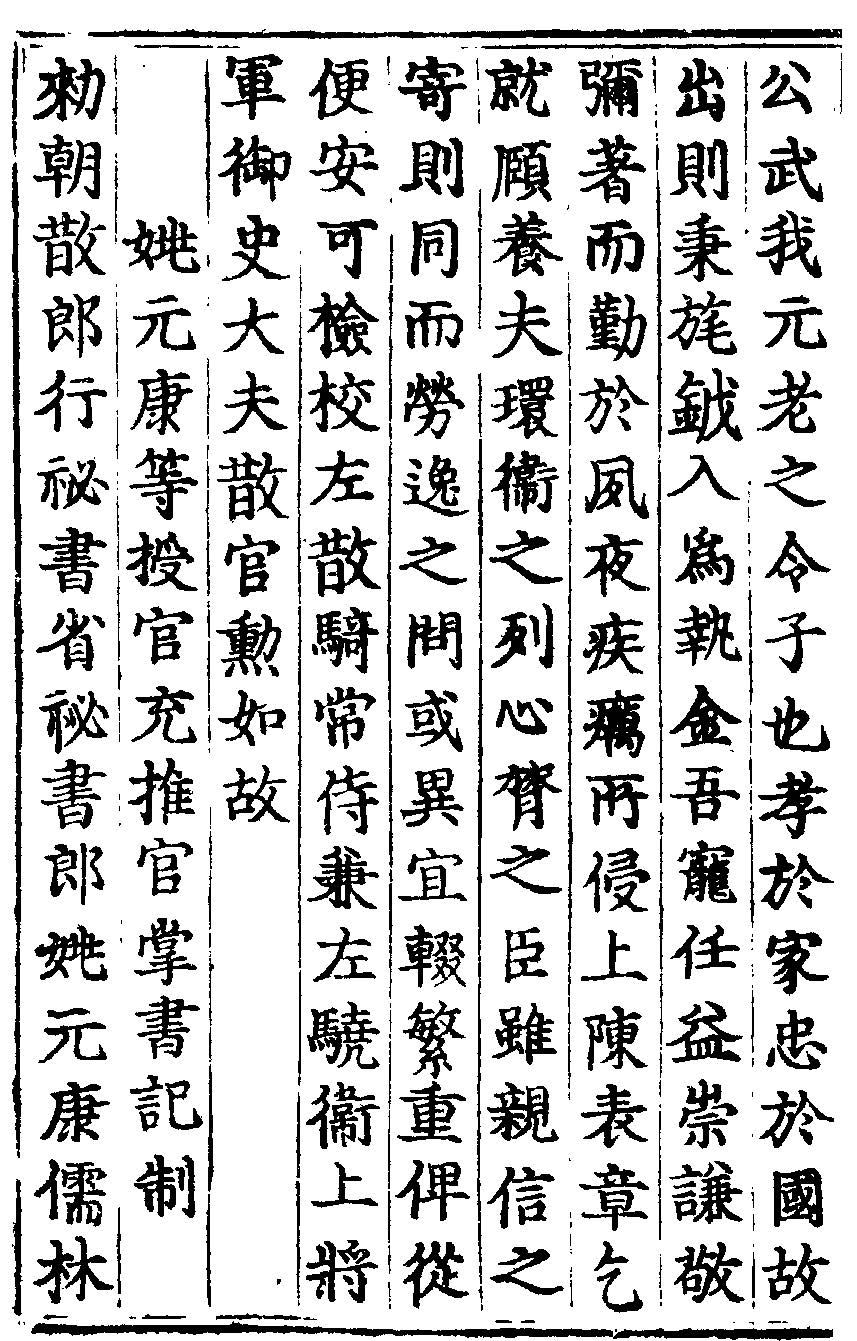 公武我元老之令子也孝於家忠於國故
出則秉旄鉞入爲執金吾寵任益崇謙敬
彌著而勤於夙夜疾癘所侵上陳表章乞
就頤養夫環衞之列心膂之臣雖親信之
寄則同而勞逸之間或異宜輟繁重俾從
便安可檢校左散騎常侍兼左驍衞上將
軍御史大夫散官勲如故
姚元康等授官充推官掌書記制
勑朝散郎行祕書省祕書郎姚元康儒林